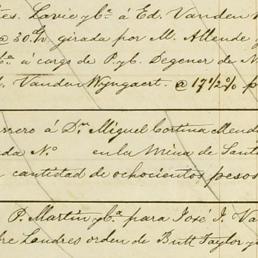 tes. Lavie y Ca. á Ed. Vanden W
@ 30 d/v girada por M. Allende y
Ca. a cargo de P. y G. Degener de N
Vanden Wyngaert. @ 17 1/2 % p
rrero á Dn. Miguel Cortina Mend
ada No. en la Mina de Sant
cantidad de ochocientos pesos
P. Martin y Ca. para José J. Va
re Londres orden de Butt Taylor y